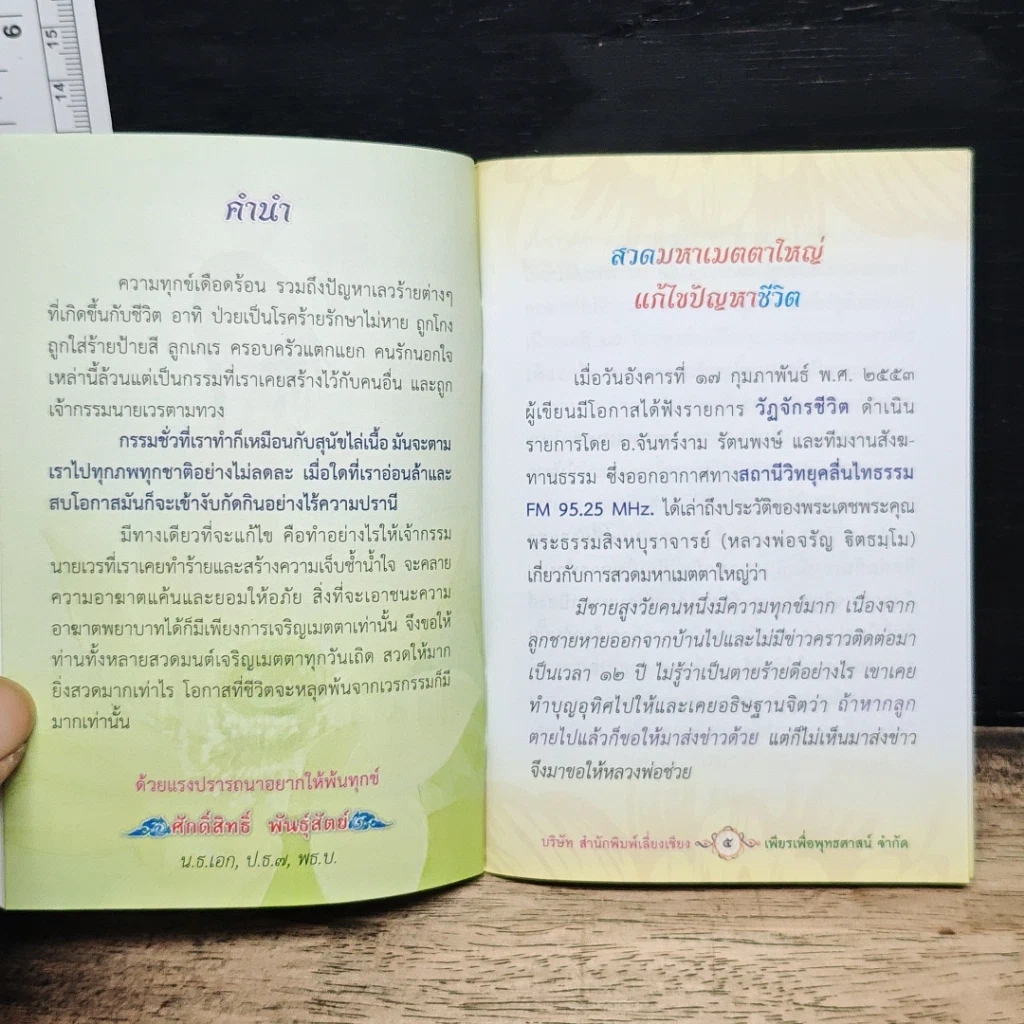 6
15
14
คำนำ
ความทุกข์เดือดร้อน รวมถึงปัญหาเลวร้ายต่างๆ
ที่เกิดขึ้นกับชีวิต อาทิ ป่วยเป็นโรคร้ายรักษาไม่หาย ถูกโกง
ถูกใส่ร้ายป้ายสี ลูกเกเร ครอบครัวแตกแยก คนรักนอกใจ
เหล่านี้ล้วนแต่เป็นกรรมที่เราเคยสร้างไว้กับคนอื่น และถูก
เจ้ากรรมนายเวรตามทวง
กรรมชั่วที่เราทำก็เหมือนกับสุนัขไล่เนื้อ มันจะตาม
เราไปทุกภพทุกชาติอย่างไม่ลดละ เมื่อใดที่เราอ่อนล้าและ
สบโอกาสมันก็จะเข้างับกัดกินอย่างไร้ความปรานี
มีทางเดียวที่จะแก้ไข คือทำอย่างไรให้เจ้ากรรม
นายเวรที่เราเคยทำร้ายและสร้างความเจ็บช้ำน้ำใจ จะคลาย
ความอาฆาตแค้นและยอมให้อภัย สิ่งที่จะเอาชนะความ
อาฆาตพยาบาทได้ก็มีเพียงการเจริญเมตตาเท่านั้น จึงขอให้
ท่านทั้งหลายสวดมนต์เจริญเมตตาทุกวันเถิด สวดให้มาก
ยิ่งสวดมากเท่าไร โอกาสที่ชีวิตจะหลุดพ้นจากเวรกรรมก็มี
มากเท่านั้น
ด้วยแรงปรารถนาอยากให้พ้นทุกข์
ศักดิ์สิทธิ์ พันธุ์สัตย์
น.ธ.เอก, ป.ธ.๗, พธ.บ.
สวดมหาเมตตาใหญ่
แก้ไขปัญหาชีวิต
เมื่อวันอังคารที่ ๑๗ กุมภาพันธ์ พ.ศ. ๒๕๕๓
ผู้เขียนมีโอกาสได้ฟังรายการ วัฏจักรชีวิต ดำเนิน
รายการโดย อ.จันทร์งาม รัตนพงษ์ และทีมงานสังฆ-
ทานธรรม ซึ่งออกอากาศทางสถานีวิทยุคลื่นไทธรรม
FM 95.25 MHz. ได้เล่าถึงประวัติของพระเดชพระคุณ
พระธรรมสิงหบุราจารย์ (หลวงพ่อจรัญ ฐิตธมฺโม)
เกี่ยวกับการสวดมหาเมตตาใหญ่ว่า
มีชายสูงวัยคนหนึ่งมีความทุกข์มาก เนื่องจาก
ลูกชายหายออกจากบ้านไปและไม่มีข่าวคราวติดต่อมา
เป็นเวลา ๑๒ ปี ไม่รู้ว่าเป็นตายร้ายดีอย่างไร เขาเคย
ทำบุญอุทิศไปให้และเคยอธิษฐานจิตว่า ถ้าหากลูก
ตายไปแล้วก็ขอให้มาส่งข่าวด้วย แต่ก็ไม่เห็นมาส่งข่าว
จึงมาขอให้หลวงพ่อช่วย
บริษัท สำนักพิมพ์เลี่ยงเชียง ๕ เพียรเพื่อพุทธศาสน์ จำกัด